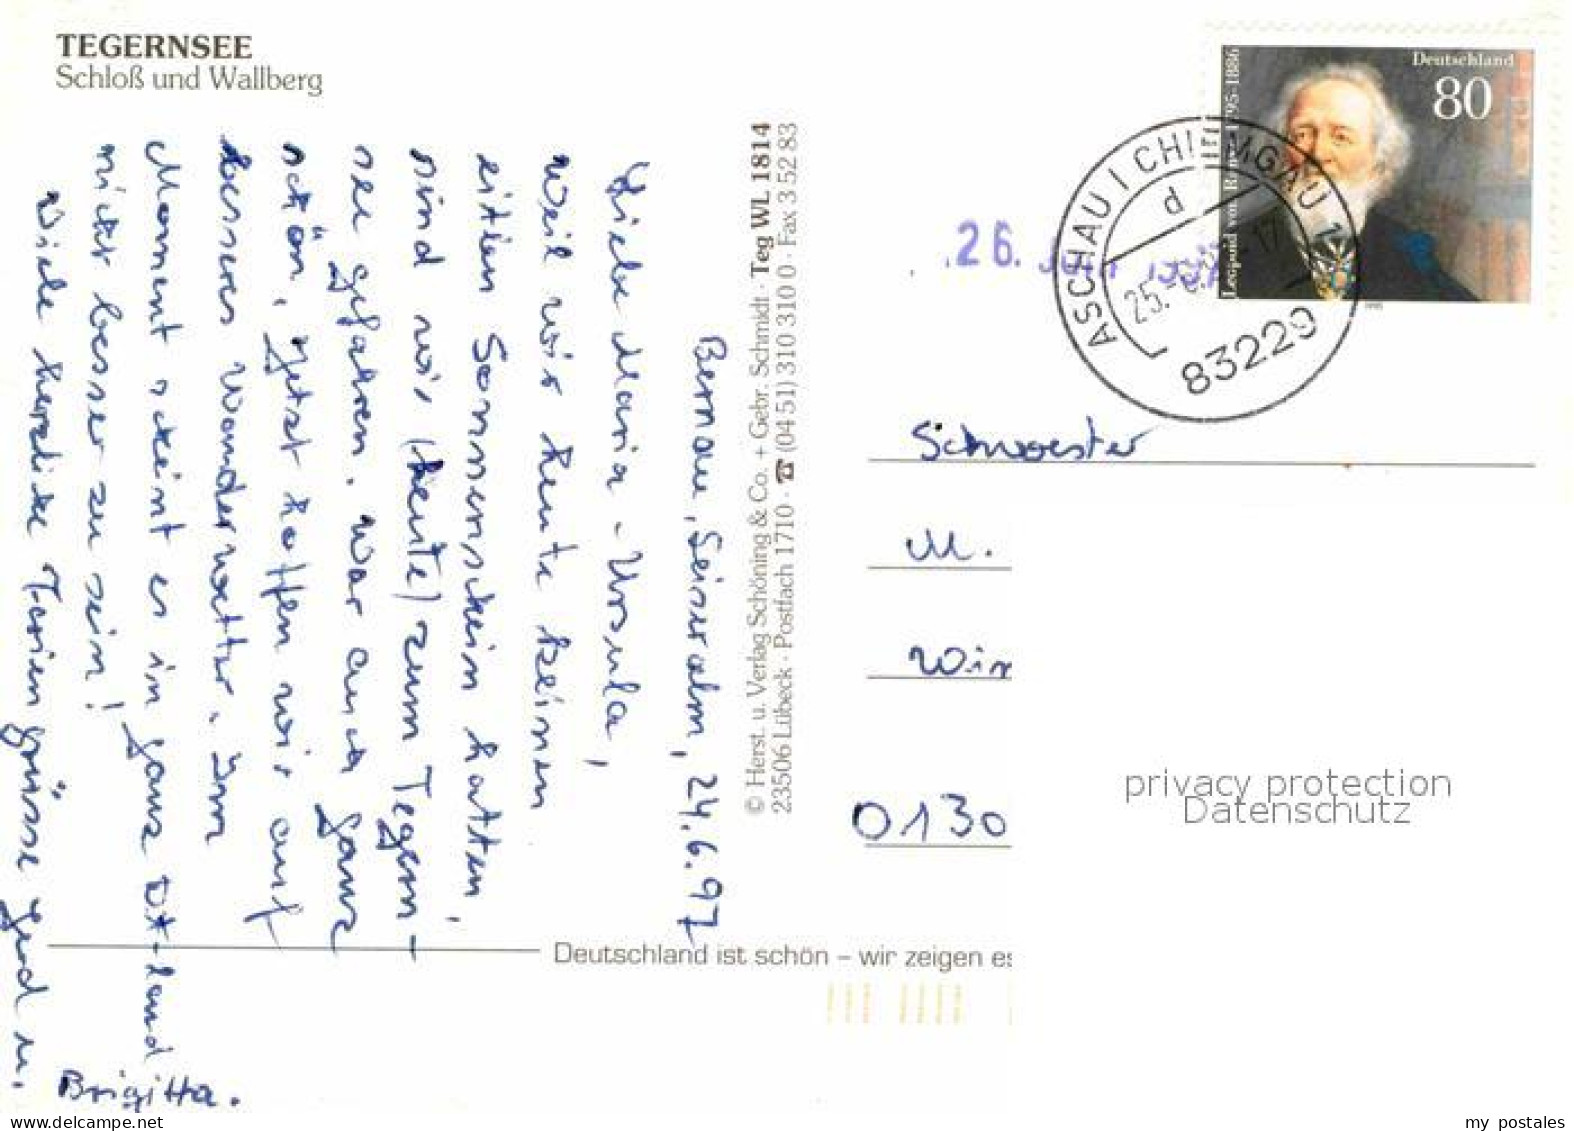 TEGERNSEE
Schloß und Wallberg
Bernau, Seiseralm, 24.6.97
Liebe Maria-Ursula,
weil wir heute keinen
eitlen Sonnenschein hatten,
sind wir (heute) zum Tegern-
see gefahren. War auch ganz
schön. Jetzt hoffen wir auf
besseres Wanderwetter. Im
Moment scheint es in ganz Dt-land
nicht besser zu sein!
Viele herzliche Feriengrüsse Gerd u.
Brigitta.
© Herst. u. Verlag Schöning & Co. + Gebr. Schmidt · Teg WL 1814
23506 Lübeck · Postfach 1710 · ☎ (04 51) 310 310 0 · Fax 3 52 83
Deutschland ist schön – wir zeigen es
Deutschland
80
Leopold von 1795-1886
1995
ASCHAU I CHIEMGAU 1
d
25.
-17
83229
26. Juni
Schwester
M.
Win
0130
privacy protection
Datenschutz
www.delcampe.net
my postales